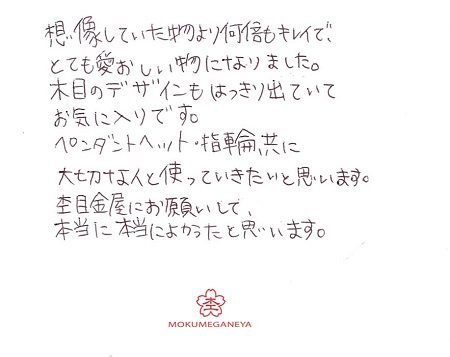 想像していた物より何倍もキレイで、
とても愛おしい物になりました。
木目のデザインもはっきり出ていて
お気に入りです。
ペンダントヘット・指輪、共に
大切な人と使っていきたいと思います。
杢目金屋にお願いして、
本当に本当によかったと思います。
杢
MOKUMEGANEYA